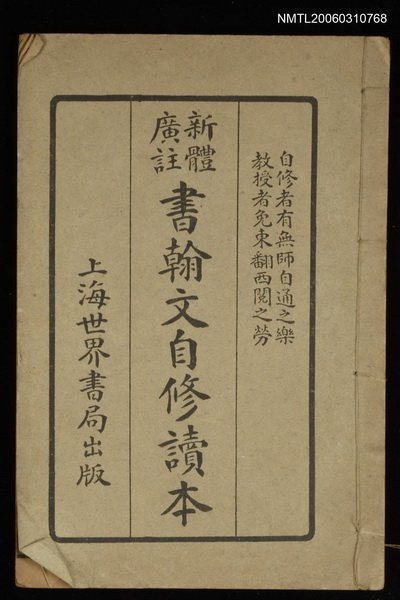 NMTL20060310768
自修者有無師自通之樂
教授者免東翻西閱之勞
新體
廣註
書翰文自修讀本
上海世界書局出版